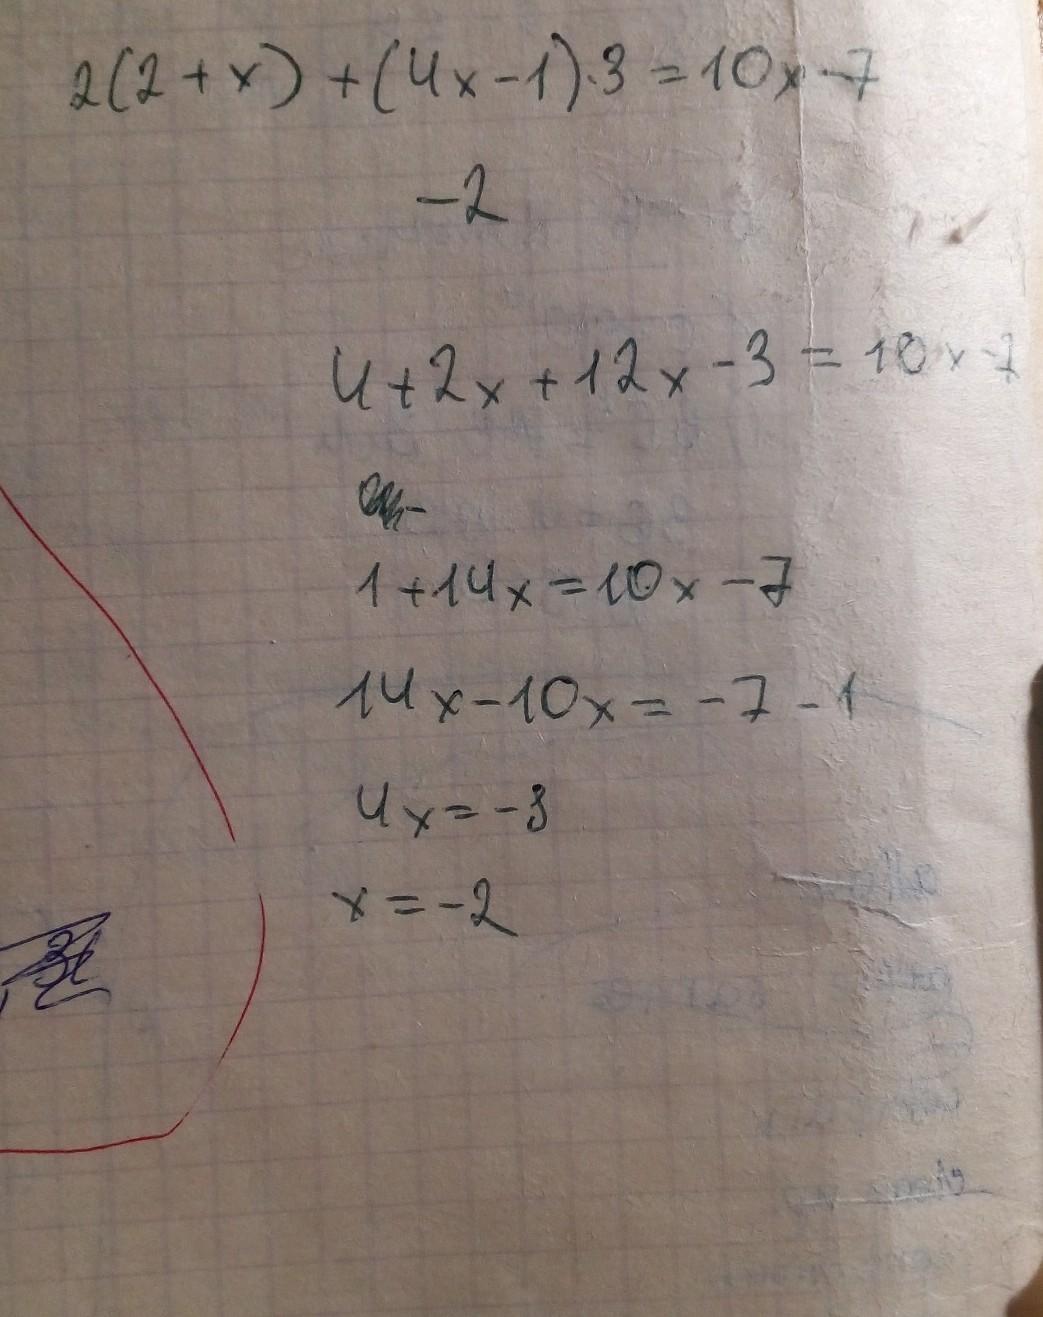 2(2+x)+(4x-1)·3=10x-7
-2
4+2x+12x-3=10x-7
1+14x=10x-7
14x-10x=-7-1
4x=-3
x=-2